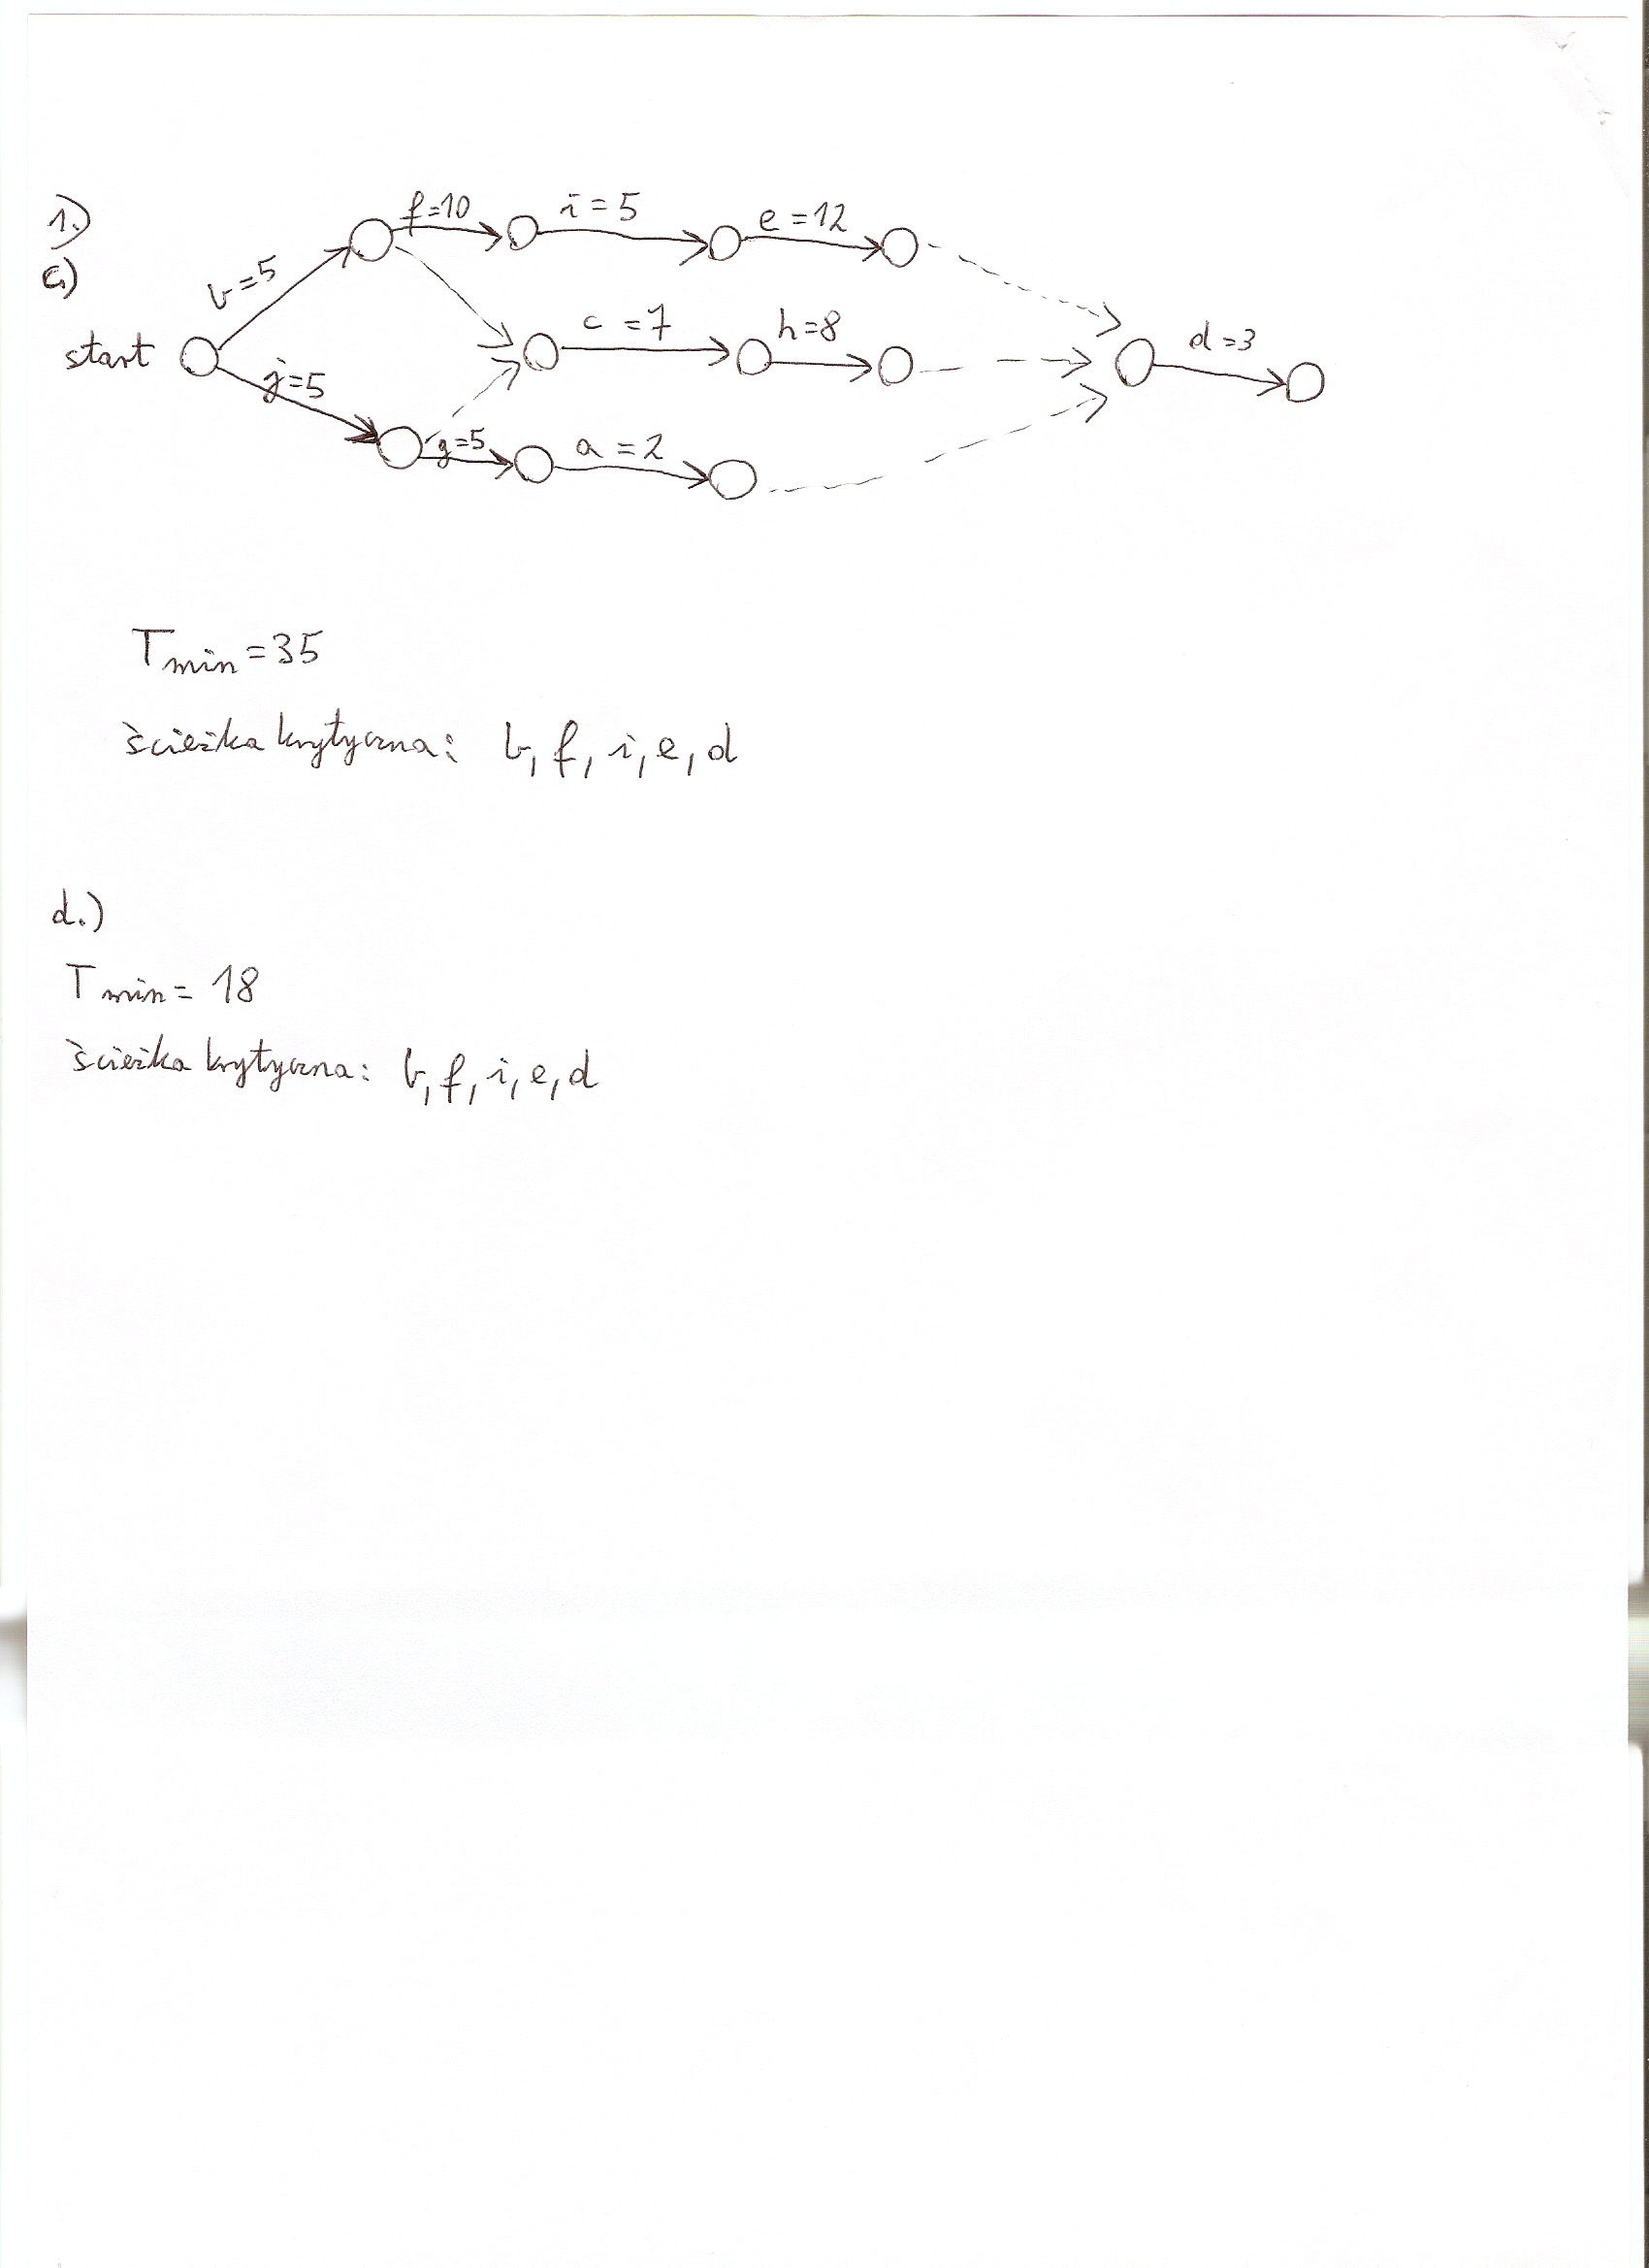 1.)
c)
f=10
i=5
e=12
b=5
start
j=5
c=7
h=8
d=3
g=5
a=2
Tmin=35
ścieżka krytyczna: b, f, i, e, d
d.)
Tmin= 18
ścieżka krytyczna: b, f, i, e, d